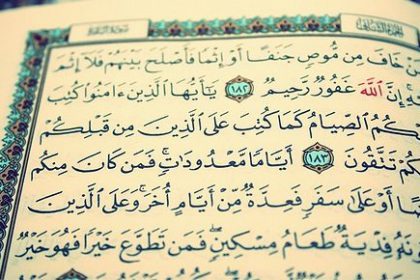 الجزء الثاني سورة البقرة
خَافَ مِن مُّوصٍ جَنَفًا أَوْ إِثْمًا فَأَصْلَحَ بَيْنَهُمْ فَلَآ إِثْمَ
إِنَّ اللَّهَ غَفُورٌ رَّحِيمٌ ١٨٢ يَٰٓأَيُّهَا الَّذِينَ ءَامَنُوا كُتِبَ
كُمُ الصِّيَامُ كَمَا كُتِبَ عَلَى الَّذِينَ مِن قَبْلِكُمْ
كُمْ تَتَّقُونَ ١٨٣ أَيَّامًا مَّعْدُودَٰتٍ فَمَن كَانَ مِنكُم
ضًا أَوْ عَلَىٰ سَفَرٍ فَعِدَّةٌ مِّنْ أَيَّامٍ أُخَرَ وَعَلَى الَّذِينَ
نَهُ فِدْيَةٌ طَعَامُ مِسْكِينٍ فَمَن تَطَوَّعَ خَيْرًا فَهُوَ خَيْرٌ